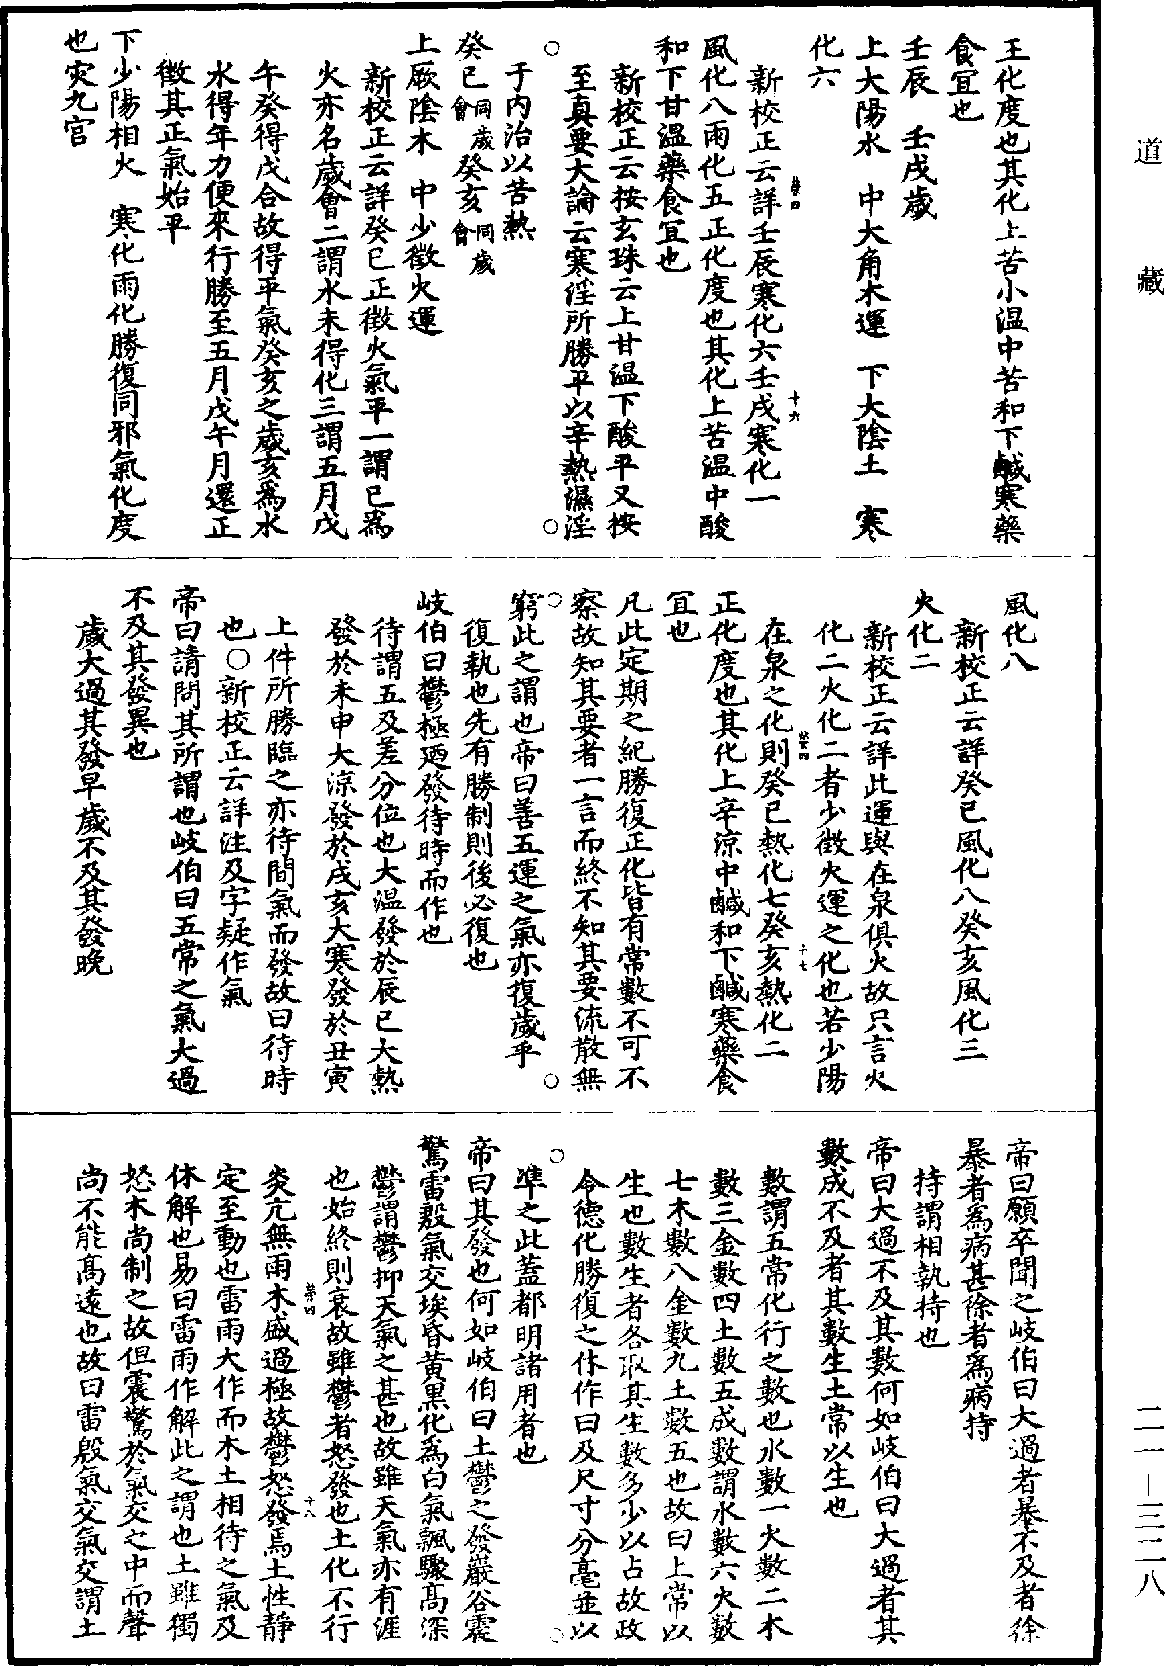 道藏
王化度也其化上苦小温中苦和下鹹寒藥
食宜也
壬辰　壬戌歲
上大陽水　中大角木運　下大陰土　寒
化六
新校正云詳壬辰寒化六壬戌寒化一
風化八雨化五正化度也其化上苦温中酸
和下甘温藥食宜也
新校正云按玄珠云上甘温下酸平又按
至真要大論云寒淫所勝平以辛熱濕淫
于内治以苦熱
癸巳同歲會癸亥同歲會
上厥陰木　中少徵火運
新校正云詳癸巳正徵火氣平一謂巳為
火亦名歲會二謂水未得化三謂五月戊
午癸得戊合故得平氣癸亥之歲亥爲水
水得年力便來行勝至五月戊午月還正
徵其正氣始平
下少陽相火　寒化雨化勝復同邪氣化度
也灾九宫
風化八
新校正云詳癸巳風化八癸亥風化三
火化二
新校正云詳此運與在泉俱火故只言火
化二火化二者少徵火運之化也若少陽
在泉之化則癸巳熱化七癸亥熱化二
正化度也其化上辛涼中鹹和下鹹寒藥食
宜也
凡此定期之紀勝復正化皆有常數不可不
察故知其要者一言而終不知其要流散無
窮此之謂也帝曰善五運之氣亦復歲乎
復執也先有勝制則後必復也
岐伯曰鬱極廼發待時而作也
待謂五及差分位也大温發於辰巳大熱
發於未申大涼發於戌亥大寒發於丑寅
上件所勝臨之亦待間氣而發故曰待時
也○新校正云詳注及字疑作氣
帝曰請問其所謂也岐伯曰五常之氣大過
不及其發異也
歲大過其發早歲不及其發晚
帝曰願卒聞之岐伯曰大過者暴不及者徐
暴者爲病甚徐者爲病持
持謂相執持也
帝曰大過不及其數何如岐伯曰大過者其
數成不及者其數生土常以生也
數謂五常化行之數也水數一火數二木
數三金數四土數五成數謂水數六火數
七木數八金數九土數五也故曰土常以
生也數生者各取其生數多少以占故政
令德化勝復之休作日及尺寸分毫並以
準之此蓋都明諸用者也
帝曰其發也何如岐伯曰土鬱之發巖谷震
驚雷殷氣交埃昏黄黑化為白氣飄驟高深
鬱謂鬱抑天氣之甚也故雖天氣亦有涯
也始終則衰故雖鬱者怒發也土化不行
炎亢無雨木盛過極故鬱怒發焉土性靜
定至動也雷雨大作而木土相待之氣及
休解也易曰雷雨作解此之謂也土雖獨
怒木尚制之故但震驚於氣交之中而聲
尚不能高遠也故曰雷殷氣交氣交謂土
二一—三二八